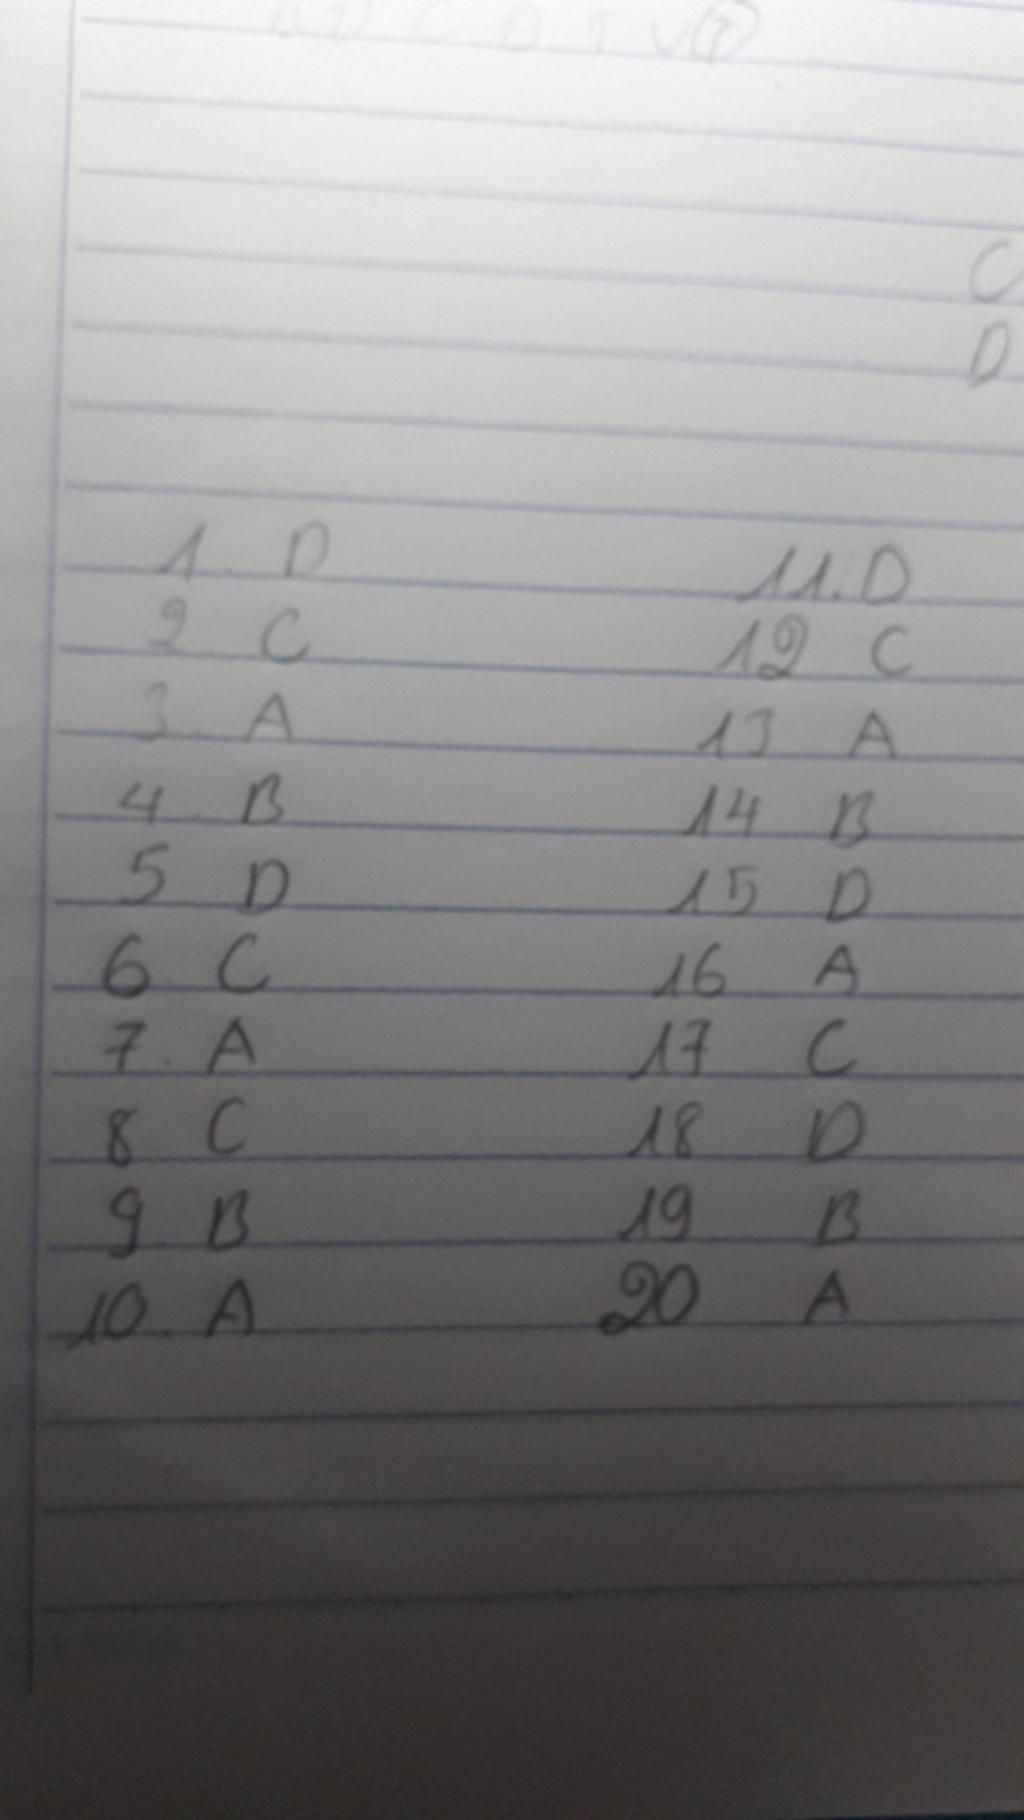 C
D
1. D
2 C
3. A
4. B
5 D
6 C
7. A
8 C
9 B
10. A
11. D
12 C
13 A
14 B
15 D
16 A
17 C
18 D
19 B
20 A